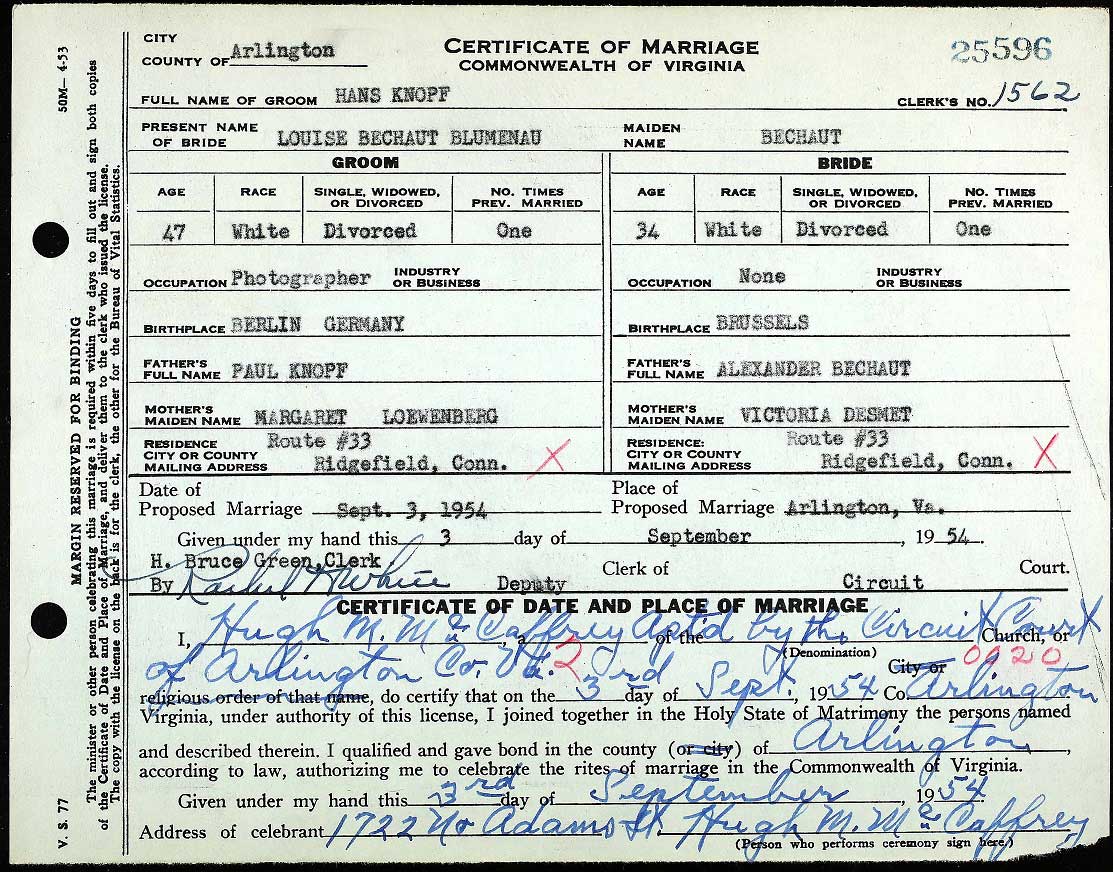 CITY
COUNTY OF Arlington
CERTIFICATE OF MARRIAGE
COMMONWEALTH OF VIRGINIA
25596
FULL NAME OF GROOM HANS KNOPF
CLERK'S NO. 1562
PRESENT NAME
OF BRIDE LOUISE BECHAUT BLUMENAU
MAIDEN
NAME BECHAUT
GROOM BRIDE
AGE RACE SINGLE, WIDOWED, OR DIVORCED NO. TIMES PREV. MARRIED AGE RACE SINGLE, WIDOWED, OR DIVORCED NO. TIMES PREV. MARRIED
47 White Divorced One 34 White Divorced One
OCCUPATION Photographer INDUSTRY OR BUSINESS OCCUPATION None INDUSTRY OR BUSINESS
BIRTHPLACE BERLIN GERMANY BIRTHPLACE BRUSSELS
FATHER'S FULL NAME PAUL KNOPF FATHER'S FULL NAME ALEXANDER BECHAUT
MOTHER'S MAIDEN NAME MARGARET LOEWENBERG MOTHER'S MAIDEN NAME VICTORIA DESMET
RESIDENCE Route #33 RESIDENCE: Route #33
CITY OR COUNTY CITY OR COUNTY
MAILING ADDRESS Ridgefield, Conn. X MAILING ADDRESS Ridgefield, Conn. X
Date of Place of
Proposed Marriage Sept. 3, 1954 Proposed Marriage Arlington, Va.
Given under my hand this 3 day of September, 1954.
H. Bruce Green, Clerk Clerk of Circuit Court.
By Rachel H White Deputy
CERTIFICATE OF DATE AND PLACE OF MARRIAGE
I, Hugh M. McCaffrey Apt'd by the Circuit Court of the Church, or
(Denomination)
of Arlington Co. Va. 2 City or 0020
religious order of that name, do certify that on the 3rd day of Sept., 1954 Co. Arlington
Virginia, under authority of this license, I joined together in the Holy State of Matrimony the persons named
and described therein. I qualified and gave bond in the county (or city) of Arlington,
according to law, authorizing me to celebrate the rites of marriage in the Commonwealth of Virginia.
Given under my hand this 3rd day of September, 1954
Address of celebrant 1722 No Adams St. Hugh M. McCaffrey
(Person who performs ceremony sign here.)
50M—4-53
V. S. 77
MARGIN RESERVED FOR BINDING
The minister or other person celebrating this marriage is required within five days to fill out and sign both copies
of the Certificate of Date and Place of Marriage, and deliver them to the clerk who issued the license.
The copy with the license on the back is for the clerk, the other for the Bureau of Vital Statistics.